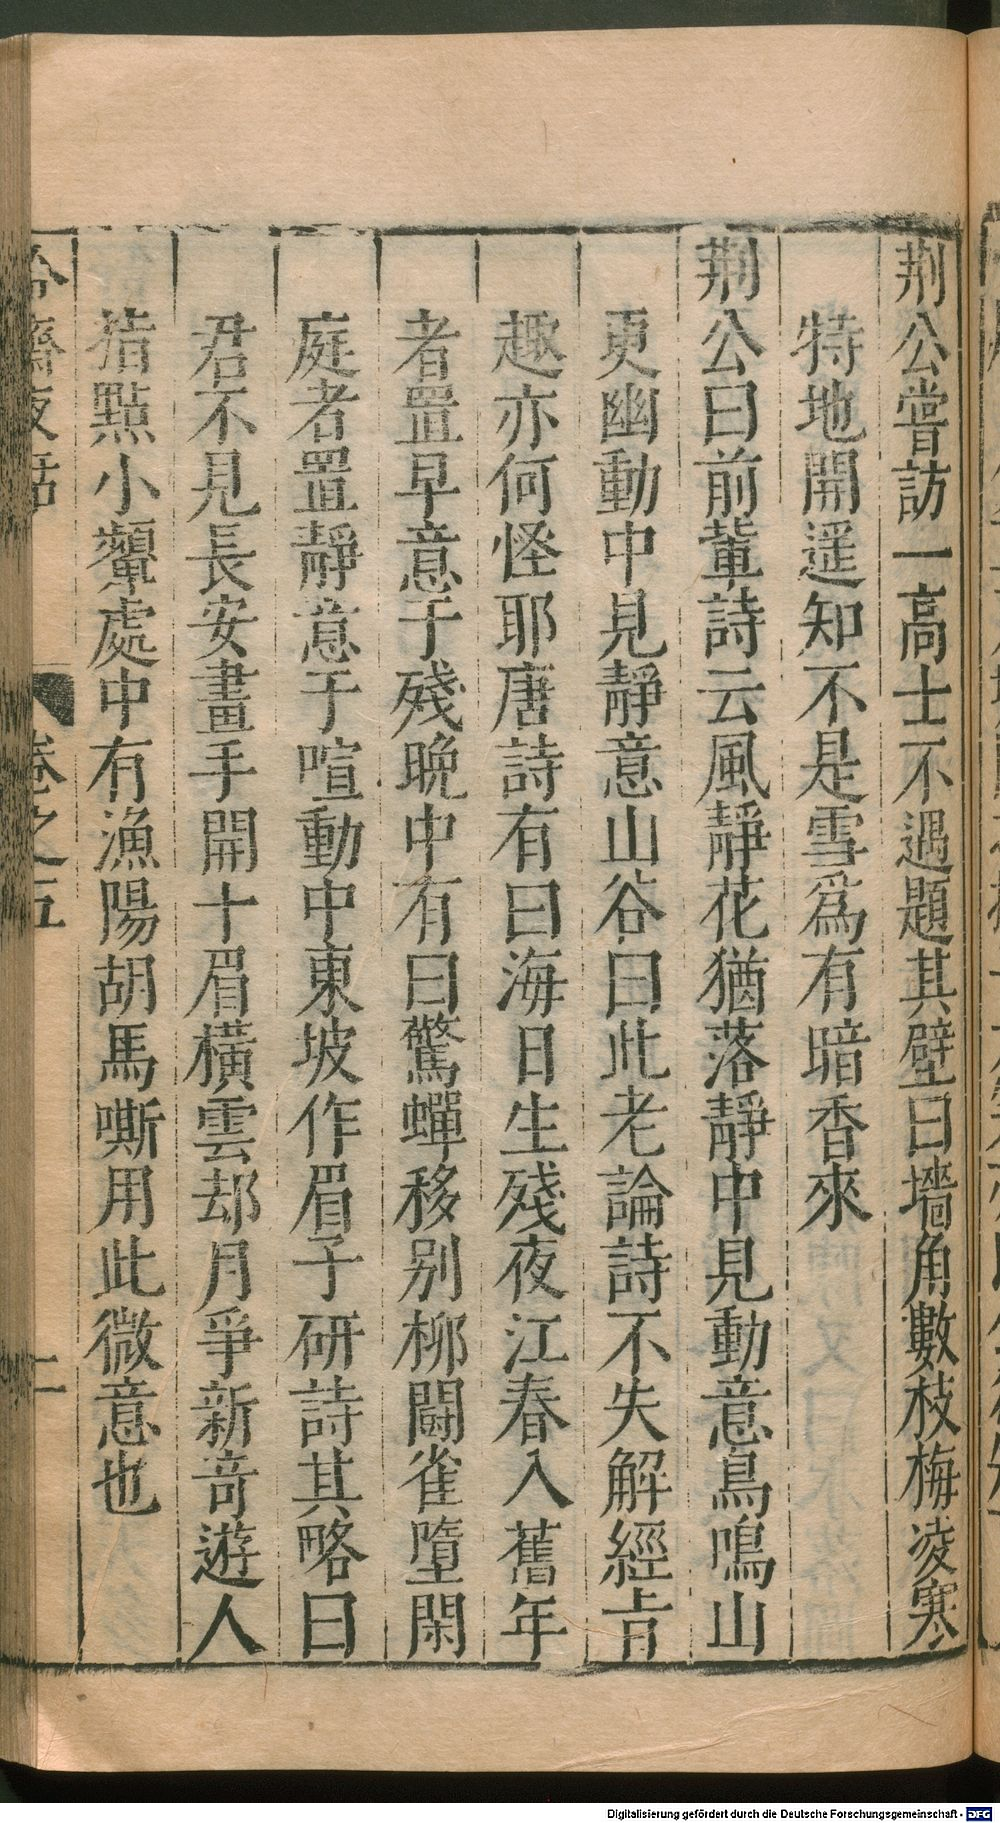 荆公嘗訪一高士不遇題其壁曰墻角數枝梅凌寒
特地開遥知不是雪爲有暗香來
荆公曰前輩詩云風靜花猶落靜中見動意鳥鳴山
更幽動中見靜意山谷曰此老論詩不失解經旨
趣亦何怪耶唐詩有曰海日生殘夜江春入舊年
者置早意于殘晚中有曰驚蟬移别柳鬪雀墮閑
庭者置靜意于喧動中東坡作眉子研詩其略曰
君不見長安畫手開十眉横雲却月爭新奇遊人
指點小顰處中有漁陽胡馬嘶用此微意也
冷齋夜話
卷之五
二
Digitalisierung gefördert durch die Deutsche Forschungsgemeinschaft - DFG